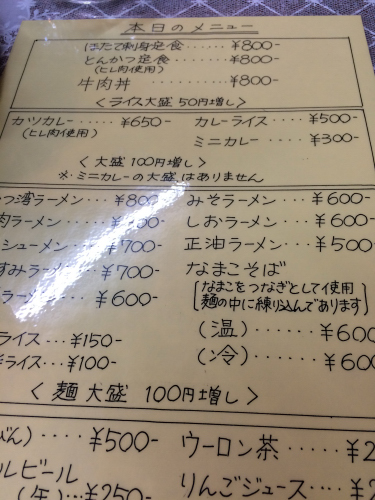 本日のメニュー
ほたて刺身定食‥‥‥¥800-
とんかつ定食‥‥‥¥800-
(ヒレ肉使用)
牛肉丼‥‥‥¥800-
<ライス大盛 50円増し>
カツカレー‥‥¥650-
(ヒレ肉使用)
カレーライス‥‥¥500-
ミニカレー‥‥¥300-
<大盛 100円増し>
※ミニカレーの大盛はありません
つ湾ラーメン‥‥¥800-
肉ラーメン
シューメン‥‥¥700-
すみラーメン‥‥¥700-
ラーメン‥‥¥600-
ライス‥‥¥150-
ライス‥‥¥100-
みそラーメン‥‥¥600-
しおラーメン‥‥¥600-
正油ラーメン‥‥¥500-
なまこそば
[なまこをつなぎとして使用
麺の中に練り込んであります]
(温)‥‥‥¥600
(冷)‥‥‥¥600
<麺大盛 100円増し>
びん)‥‥¥500-
ルビール
(缶)‥‥¥250-
ウーロン茶‥‥¥2
りんごジュース‥‥¥2